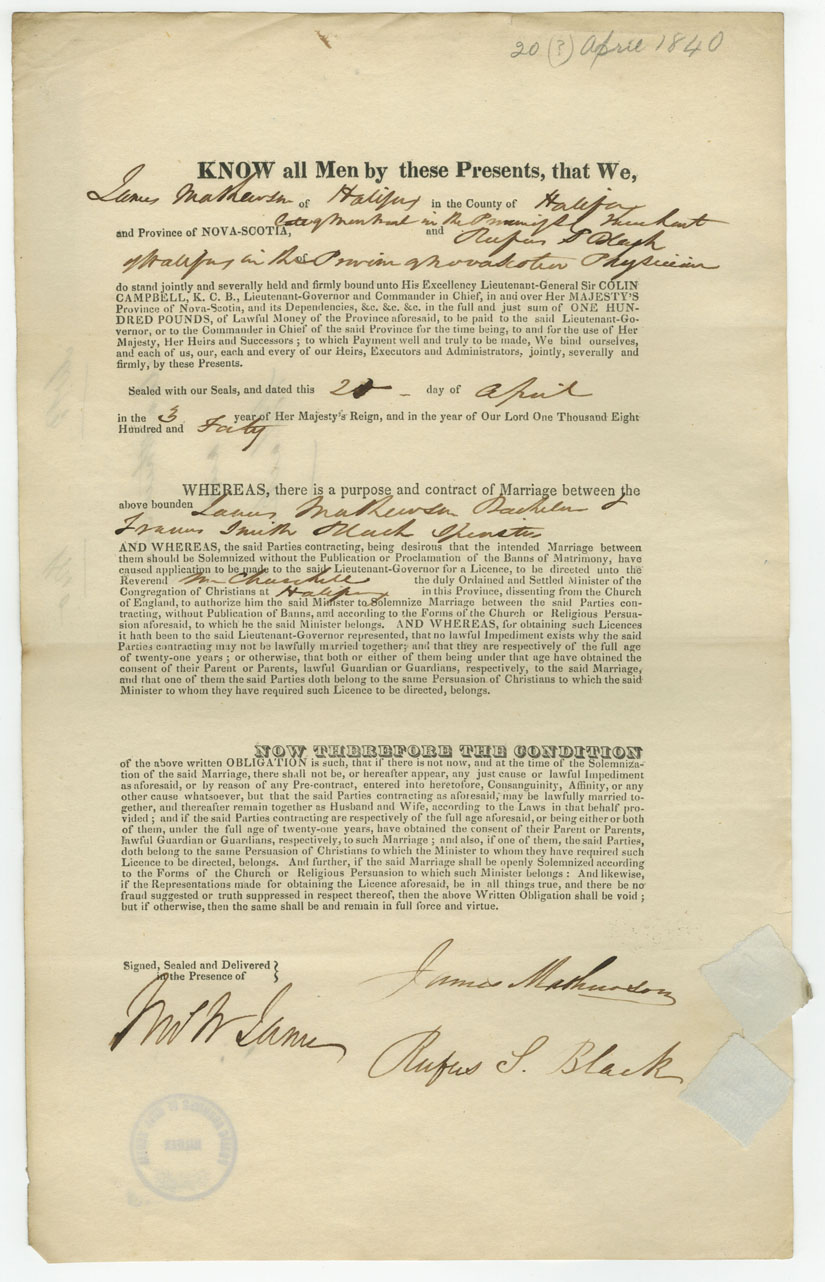 20 (?) April 1840
KNOW all Men by these Presents, that We,
James Mathewson of Halifax in the County of Halifax
and Province of NOVA-SCOTIA, in the Merchant
and Rufus S Black
of Halifax in the Province of Nova Scotia Physician
do stand jointly and severally held and firmly bound unto His Excellency Lieutenant-General Sir COLIN
CAMPBELL, K. C. B., Lieutenant-Governor and Commander in Chief, in and over Her MAJESTY'S
Province of Nova-Scotia, and its Dependencies, &c. &c. &c. in the full and just sum of ONE HUN-
DRED POUNDS, of Lawful Money of the Province aforesaid, to be paid to the said Lieutenant-Go-
vernor, or to the Commander in Chief of the said Province for the time being, to and for the use of Her
Majesty, Her Heirs and Successors ; to which Payment well and truly to be made, We bind ourselves,
and each of us, our, each and every of our Heirs, Executors and Administrators, jointly, severally and
firmly, by these Presents.
Sealed with our Seals, and dated this 20 - day of April
in the 3 year of Her Majesty's Reign, and in the year of Our Lord One Thousand Eight
Hundred and Forty
WHEREAS, there is a purpose and contract of Marriage between the
above bounden James Mathewson Bachelor &
Frances Smith Black Spinster
AND WHEREAS, the said Parties contracting, being desirous that the intended Marriage between
them should be Solemnized without the Publication or Proclamation of the Banns of Matrimony, have
caused application to be made to the said Lieutenant-Governor for a Licence, to be directed unto the
Reverend Mr Churchill the duly Ordained and Settled Minister of the
Congregation of Christians at Halifax in this Province, dissenting from the Church
of England, to authorize him the said Minister to Solemnize Marriage between the said Parties con-
tracting, without Publication of Banns, and according to the Forms of the Church or Religious Persua-
sion aforesaid, to which he the said Minister belongs. AND WHEREAS, for obtaining such Licences
it hath been to the said Lieutenant-Governor represented, that no lawful Impediment exists why the said
Parties contracting may not be lawfully married together; and that they are respectively of the full age
of twenty-one years ; or otherwise, that both or either of them being under that age have obtained the
consent of their Parent or Parents, lawful Guardian or Guardians, respectively, to the said Marriage,
and that one of them the said Parties doth belong to the same Persuasion of Christians to which the said
Minister to whom they have required such Licence to be directed, belongs.
NOW THEREFORE THE CONDITION
of the above written OBLIGATION is such, that if there is not now, and at the time of the Solemniza-
tion of the said Marriage, there shall not be, or hereafter appear, any just cause or lawful Impediment
as aforesaid, or by reason of any Pre-contract, entered into heretofore, Consanguinity, Affinity, or any
other cause whatsoever, but that the said Parties contracting as aforesaid, may be lawfully married to-
gether, and thereafter remain together as Husband and Wife, according to the Laws in that behalf pro-
vided ; and if the said Parties contracting are respectively of the full age aforesaid, or being either or both
of them, under the full age of twenty-one years, have obtained the consent of their Parent or Parents,
lawful Guardian or Guardians, respectively, to such Marriage ; and also, if one of them, the said Parties,
doth belong to the same Persuasion of Christians to which the Minister to whom they have required such
Licence to be directed, belongs. And further, if the said Marriage shall be openly Solemnized according
to the Forms of the Church or Religious Persuasion to which such Minister belongs : And likewise,
if the Representations made for obtaining the Licence aforesaid, be in all things true, and there be no
fraud suggested or truth suppressed in respect thereof, then the above Written Obligation shall be void ;
but if otherwise, then the same shall be and remain in full force and virtue.
Signed, Sealed and Delivered
in the Presence of
James Mathewson
Rufus S. Black